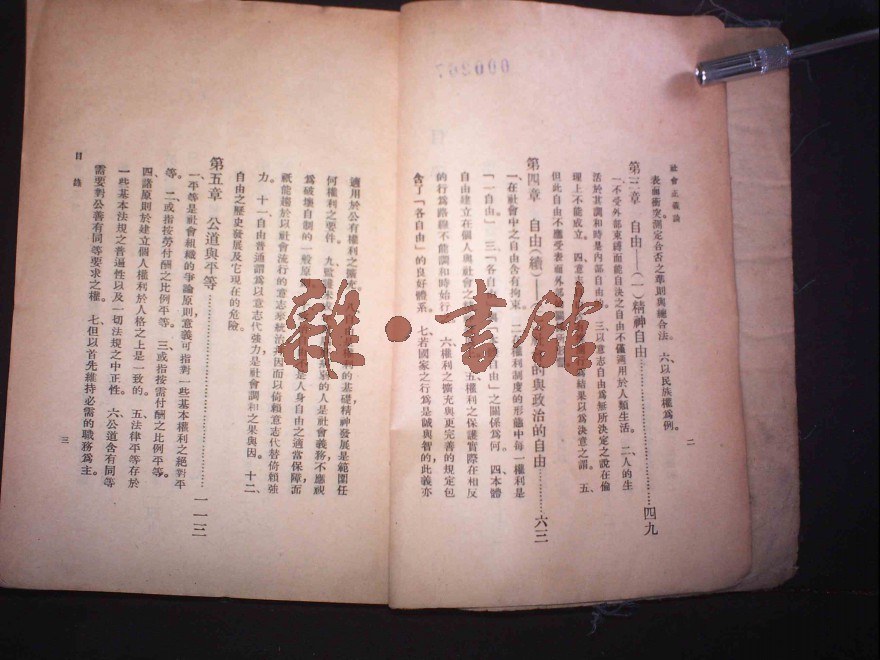 社會正義論
二
表面衝突。測定合否之準則與總合法。 六、以民族權爲例。
第三章 自由——(一)精神自由……四九
一、不受外部束縛而能自決之自由不僅適用於人類生活。 二、人的生
活於其調和時是內部自由。 三、以意志自由爲無所決定之說在倫
理上不能成立。 四、意志 結果以爲決意之謂。 五、
但此自由不應受表面外
第四章 自由(續)—— 的與政治的自由……六三
一、在社會中之自由含有拘束。 二、在權利制度的形態中每一權利是
「一自由。」 三、「各自由 」之關係爲何。 四、本體
自由建立在個人與社會之 五、權利之保護實際在相反
的行爲路線不能調和時始行 六、權利之擴充與更完善的規定包
含了「各自由」的良好體系。 七、若國家之行爲是誠與智的此義亦
適用於公有權利之擴充。 權利的基礎,精神發展是範圍任
何權利之要件。 九、 的人是社會義務不應視
爲破壞自制的一般原 是人身自由之適當保障,而
祇能趨於以社會流行的意志牽統治 因而以倚賴意志代替倚賴強
力。 十一、自由普通謂爲以意志代強力是社會調和之果與因。 十二、
自由之歷史發展及它現在的危險。
第五章 公道與平等……一一三
一、平等是社會組織的爭論原則意義可指對一些基本權利之絕對平
等。 二、或指按勞付酬之比例平等。 三、或指按需付酬之比例平等。
四、諸原則於建立個人權利於人格之上是一致的。 五、法律平等存於
一些基本法規之普遍性以及一切法規之中正性。 六、公道含有同等
需要對公善有同等要求之權。 七、但以首先維持必需的職務爲主。
目 錄
三
000267
雜·書館